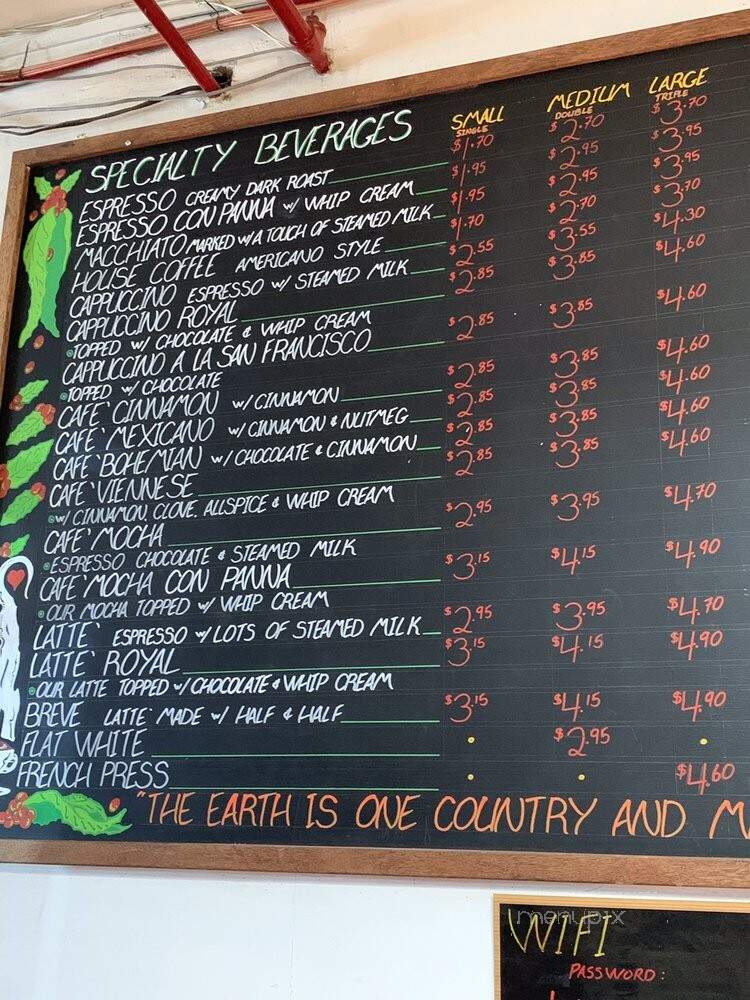 SPECIALTY BEVERAGES SMALL MEDIUM LARGE
SINGLE DOUBLE TRIPLE
ESPRESSO CREAMY DARK ROAST $1.70 $2.70 $3.70
ESPRESSO CON PANNA W/ WHIP CREAM $1.95 $2.95 $3.95
MACCHIATO MARKED W/A TOUCH OF STEAMED MILK $1.95 $2.95 $3.95
HOUSE COFFEE AMERICANO STYLE $1.70 $2.70 $3.70
CAPPUCCINO ESPRESSO W/ STEAMED MILK $2.55 $3.55 $4.30
CAPPUCCINO ROYAL $2.85 $3.85 $4.60
TOPPED W/ CHOCOLATE & WHIP CREAM
CAPPUCCINO A LA SAN FRANCISCO $2.85 $3.85 $4.60
TOPPED W/ CHOCOLATE
CAFE` CINNAMON W/ CINNAMON $2.85 $3.85 $4.60
CAFE` MEXICANO W/ CINNAMON & NUTMEG $2.85 $3.85 $4.60
CAFE` BOHEMIAN W/ CHOCOLATE & CINNAMON $2.85 $3.85 $4.60
CAFE` VIENNESE $2.85 $3.85 $4.60
W/ CINNAMON, CLOVE, ALLSPICE & WHIP CREAM
CAFE` MOCHA $2.95 $3.95 $4.70
ESPRESSO CHOCOLATE & STEAMED MILK
CAFE` MOCHA CON PANNA $3.15 $4.15 $4.90
OUR MOCHA TOPPED W/ WHIP CREAM
LATTE` ESPRESSO W/ LOTS OF STEAMED MILK $2.95 $3.95 $4.70
LATTE` ROYAL $3.15 $4.15 $4.90
OUR LATTE TOPPED W/ CHOCOLATE & WHIP CREAM
BREVE LATTE` MADE W/ HALF & HALF $3.15 $4.15 $4.90
FLAT WHITE • $2.95 •
FRENCH PRESS • • $4.60
"THE EARTH IS ONE COUNTRY AND M
menupix
WIFI
PASSWORD: